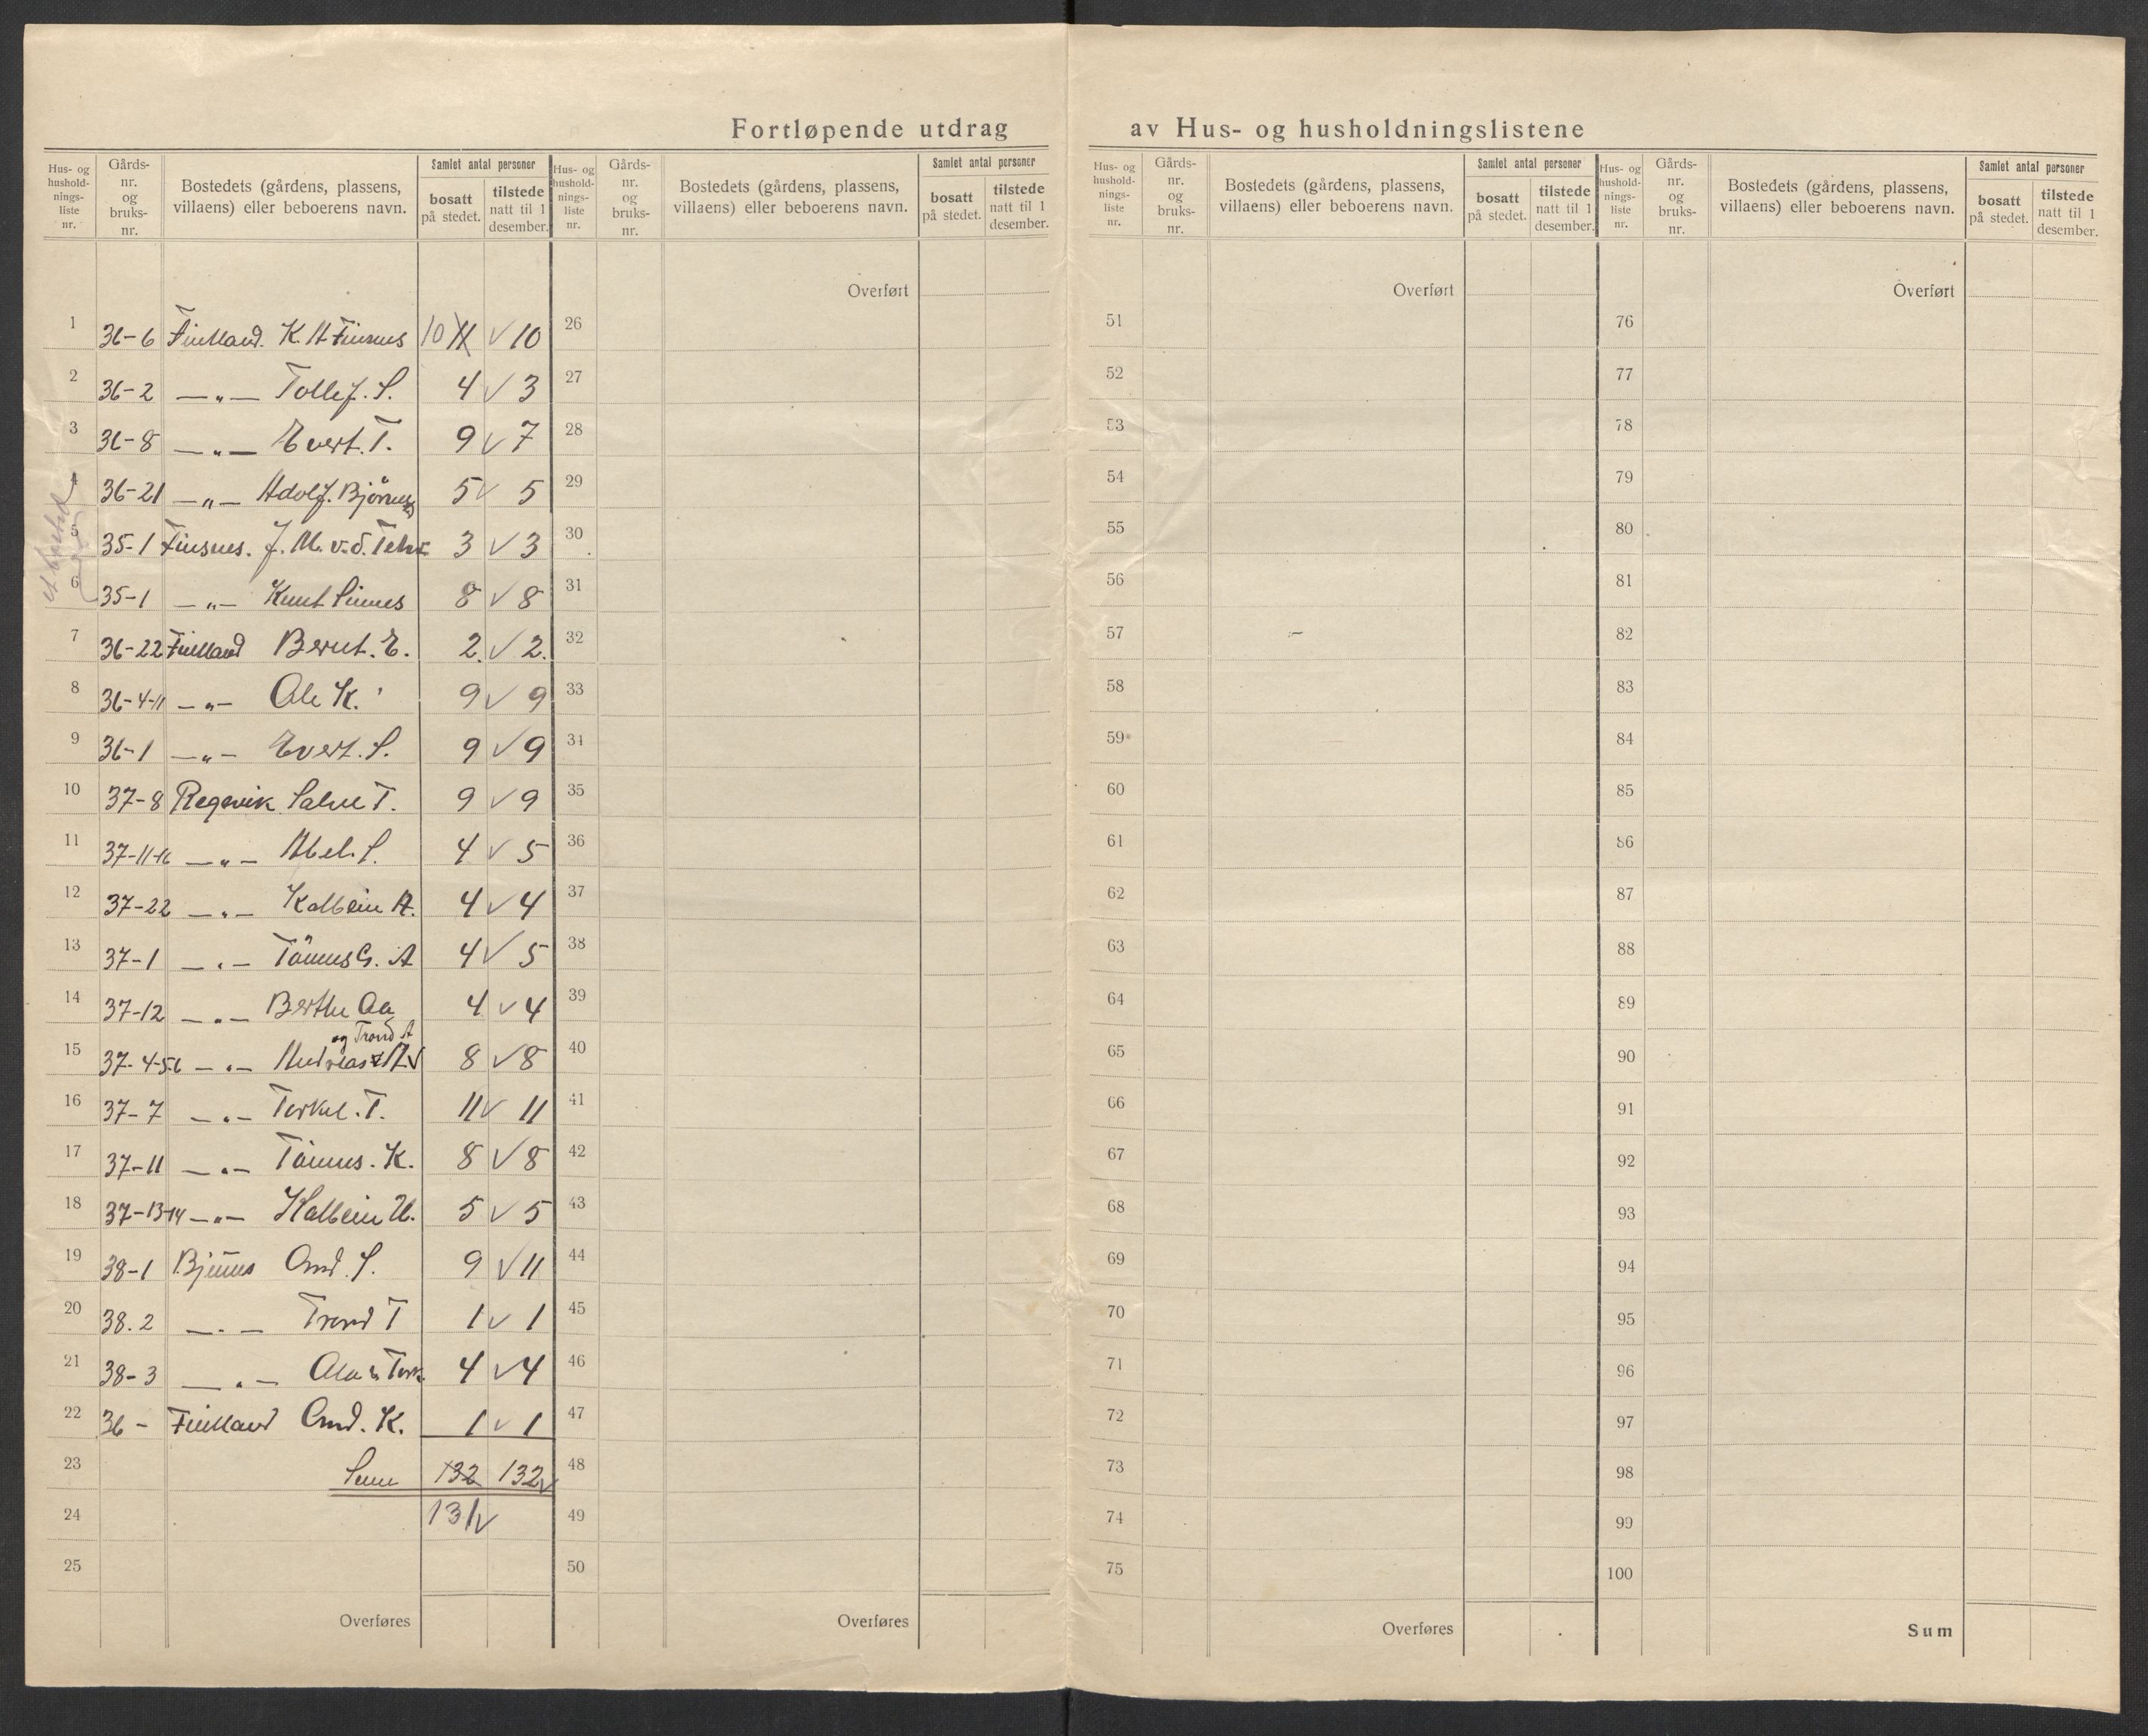 Fortløpende utdrag av Hus- og husholdningslistene
Hus- og husholdningsliste nr.
Gårds- nr. og bruks- nr.
Bostedets (gårdens, plassens, villaens) eller beboerens navn.
Samlet antal personer
bosatt på stedet.
tilstede natt til 1 desember.
Hus- og husholdningsliste nr.
Gårds- nr. og bruks- nr.
Bostedets (gårdens, plassens, villaens) eller beboerens navn.
Samlet antal personer
bosatt på stedet.
tilstede natt til 1 desember.
Hus- og husholdningsliste nr.
Gårds- nr. og bruks- nr.
Bostedets (gårdens, plassens, villaens) eller beboerens navn.
Samlet antal personer
bosatt på stedet.
tilstede natt til 1 desember.
Hus- og husholdningsliste nr.
Gårds- nr. og bruks- nr.
Bostedets (gårdens, plassens, villaens) eller beboerens navn.
Samlet antal personer
bosatt på stedet.
tilstede natt til 1 desember.
1 36-6 Fintland. K. A Finsnes 10 11 ✓ 10
2 36-2 —„— Tollef. S. 4 ✓ 3
3 36-8 —„— Evert. T. 9 ✓ 7
4 36-21 —„— Adolf. 5 ✓ 5
5 35-1 Finsnes. J. M. v. d. 3 ✓ 3
6 35-1 —„— Knut Sinnes 8 ✓ 8
7 36-22 Fintland Bernt. E. 2. ✓ 2.
8 36-4-11 —„— Ole K. 9 ✓ 9
9 36-1 —„— Evert. S. 9 ✓ 9
10 37-8 Regevik Salve T. 9 ✓ 9
11 37-11-16 —„— Abel. S. 4 ✓ 5
12 37-22 —„— Kolbein A. 4 ✓ 4
13 37-1 —„— Tønnes G. A 4 ✓ 5
14 37-12 —„— Berthe Aa 4 ✓ 4
og Trond A
15 37-4-5-6 —„— Andreas 8 ✓ 8
16 37-7 —„— Torkel. T. 11 ✓ 11
17 37-11 —„— Tønnes. K. 8 ✓ 8
18 37-13-14 —„— Kolbein 5 ✓ 5
19 38-1 Bjnnes And. S. 9 ✓ 11
20 38.2 —„— Trond T 1 ✓ 1
21 38-3 —„— 4 ✓ 4
22 36- Fintland And. K. 1 ✓ 1
23 Sum 132 132 ✓
24 131 ✓
25
Overføres
Overført
26
27
28
29
30
31
32
33
34
35
36
37
38
39
40
41
42
43
44
45
46
47
48
49
50
Overføres
Overført
51
52
53
54
55
56
57
58
59
60
61
62
63
64
65
66
67
68
69
70
71
72
73
74
75
Overføres
Overført
76
77
78
79
80
81
82
83
84
85
86
87
88
89
90
91
92
93
94
95
96
97
98
99
100
Sum